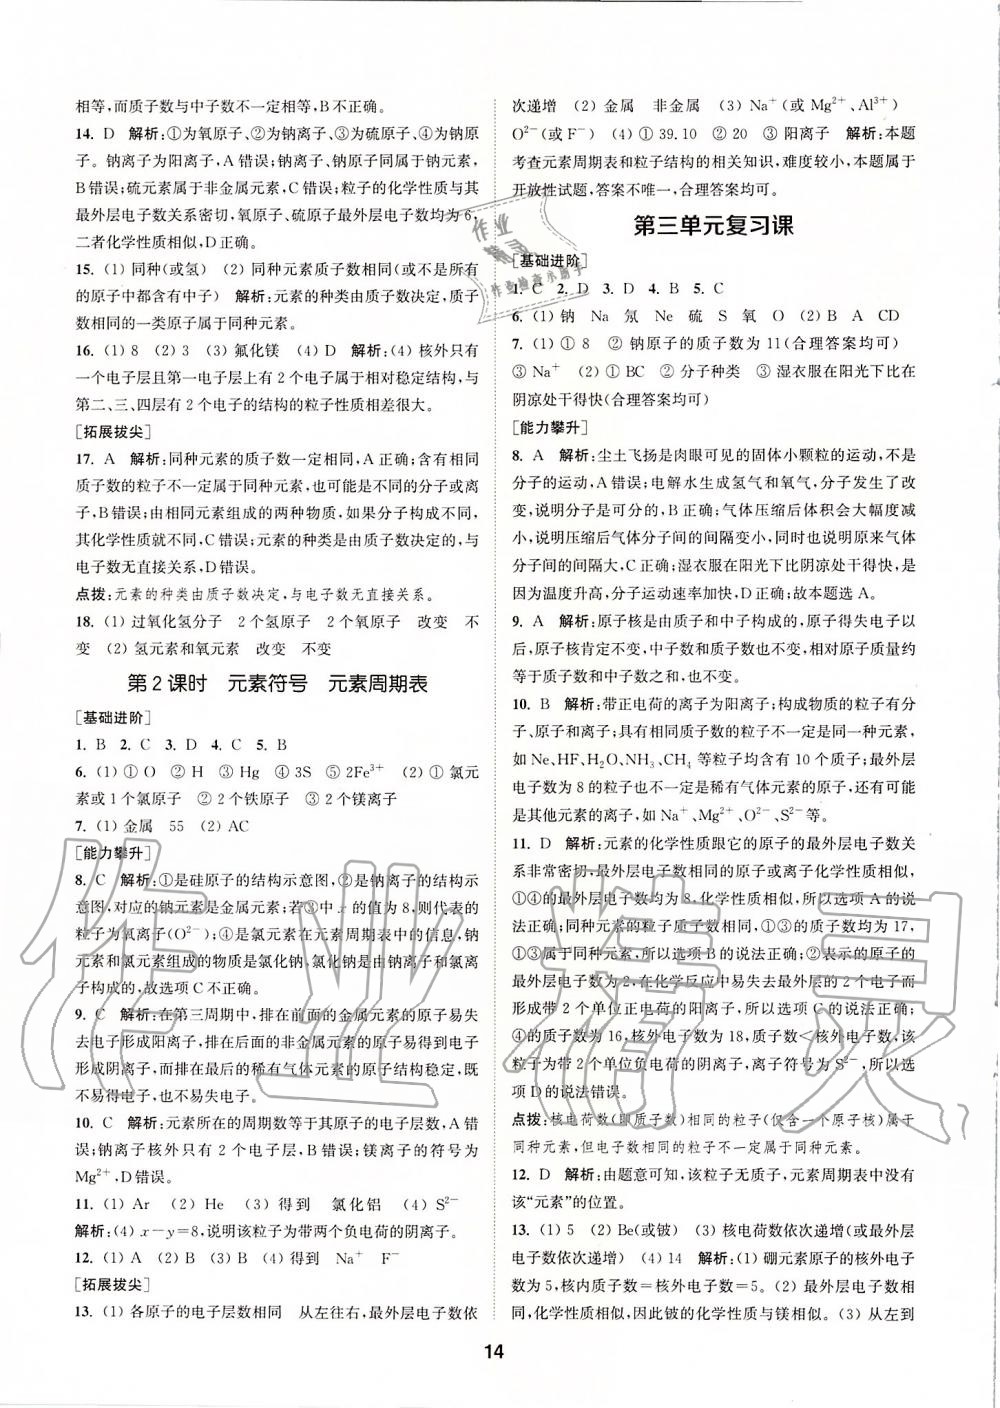 相等,而质子数与中子数不一定相等,B不正确。
14. D 解析:①为氧原子、②为钠离子、③为硫原子、④为钠原
子。钠离子为阳离子,A错误;钠离子、钠原子同属于钠元素,
B错误;硫元素属于非金属元素,C错误;粒子的化学性质与其
最外层电子数关系密切,氧原子、硫原子最外层电子数均为6,
二者化学性质相似,D正确。
15. (1) 同种(或氢) (2) 同种元素质子数相同(或不是所有
的原子中都含有中子) 解析:元素的种类由质子数决定,质子
数相同的一类原子属于同种元素。
16. (1) 8 (2) 3 (3) 氟化镁 (4) D 解析:(4) 核外只有
一个电子层且第一电子层上有2个电子属于相对稳定结构,与
第二、三、四层有2个电子的结构的粒子性质相差很大。
[拓展拔尖]
17. A 解析:同种元素的质子数一定相同,A正确;含有相同
质子数的粒子不一定属于同种元素,也可能是不同的分子或离
子,B错误;由相同元素组成的两种物质,如果分子构成不同,
其化学性质就不同,C错误;元素的种类是由质子数决定的,与
电子数无直接关系,D错误。
点拨:元素的种类由质子数决定,与电子数无直接关系。
18. (1) 过氧化氢分子 2个氢原子 2个氧原子 改变 不
变 (2) 氢元素和氧元素 改变 不变
第2课时 元素符号 元素周期表
[基础进阶]
1. B 2. C 3. D 4. C 5. B
6. (1) ① O ② H ③ Hg ④ 3S ⑤ 2Fe³⁺ (2) ① 氯元
素或1个氯原子 ② 2个铁原子 ③ 2个镁离子
7. (1) 金属 55 (2) AC
[能力攀升]
8. C 解析:①是硅原子的结构示意图,②是钠离子的结构示
意图,对应的钠元素是金属元素;若③中x的值为8,则代表的
粒子为氧离子(O²⁻);④是氯元素在元素周期表中的信息,钠
元素和氯元素组成的物质是氯化钠,氯化钠是由钠离子和氯离
子构成的,故选项C不正确。
9. C 解析:在第三周期中,排在前面的金属元素的原子易失
去电子形成阳离子,排在后面的非金属元素的原子易得到电子
形成阴离子,而排在最后的稀有气体元素的原子结构稳定,既
不易得电子,也不易失电子。
10. C 解析:元素所在的周期数等于其原子的电子层数,A错
误;钠离子核外只有2个电子层,B错误;镁离子的符号为
Mg²⁺,D错误。
11. (1) Ar (2) He (3) 得到 氯化铝 (4) S²⁻
解析:(4) x−y=8,说明该粒子为带两个负电荷的阴离子。
12. (1) A (2) B (3) B (4) 得到 Na⁺ F⁻
[拓展拔尖]
13. (1) 各原子的电子层数相同 从左往右,最外层电子数依
次递增 (2) 金属 非金属 (3) Na⁺(或Mg²⁺、Al³⁺)
O²⁻(或F⁻) (4) ① 39.10 ② 20 ③ 阳离子 解析:本题
考查元素周期表和粒子结构的相关知识,难度较小,本题属于
开放性试题,答案不唯一,合理答案均可。
第三单元复习课
[基础进阶]
1. C 2. D 3. D 4. B 5. C
6. (1) 钠 Na 氖 Ne 硫 S 氧 O (2) B A CD
7. (1) ① 8 ② 钠原子的质子数为11(合理答案均可)
③ Na⁺ (2) ① BC ② 分子种类 ③ 湿衣服在阳光下比在
阴凉处干得快(合理答案均可)
[能力攀升]
8. A 解析:尘土飞扬是肉眼可见的固体小颗粒的运动,不是
分子的运动,A错误;电解水生成氢气和氧气,分子发生了改
变,说明分子是可分的,B正确;气体压缩后体积会大幅度减
小,说明压缩后气体分子间的间隔变小,同时也说明原来气体
分子间的间隔大,C正确;湿衣服在阳光下比在阴凉处干得快,是
因为温度升高,分子运动速率加快,D正确;故本题选A。
9. A 解析:原子核是由质子和中子构成的,原子得失电子以
后,原子核肯定不变,中子数和质子数也不变,相对原子质量约
等于质子数和中子数之和,也不变。
10. B 解析:带正电荷的离子为阳离子;构成物质的粒子有分
子、原子和离子;具有相同质子数的粒子不一定是同一种元素,
如Ne、HF、H₂O、NH₃、CH₄等粒子均含有10个质子;最外层
电子数为8的粒子也不一定是稀有气体元素的原子,有可能
是其他元素的离子,如Na⁺、Mg²⁺、O²⁻、S²⁻等。
11. D 解析:元素的化学性质跟它的原子的最外层电子数关
系非常密切,最外层电子数相同的原子或离子化学性质相似,
①④的最外层电子数均为8,化学性质相似,所以选项A的说
法正确;同种元素的粒子质子数相同,①③的质子数均为17,
①③属于同种元素,所以选项B的说法正确;②表示的原子的
最外层电子数为2,在化学反应中易失去最外层2个电子而
形成带2个单位正电荷的阳离子,所以选项C的说法正确;
④的质子数为16,核外电子数为18,质子数<核外电子数,该
粒子为带2个单位负电荷的阴离子,离子符号为S²⁻,所以选
项D的说法错误。
点拨:核电荷数(即质子数)相同的粒子(仅含一个原子核)属于
同种元素,但电子数相同的粒子不一定属于同种元素。
12. D 解析:由题意可知,该粒子无质子,元素周期表中没有
该“元素”的位置。
13. (1) 5 (2) Be(或铍) (3) 核电荷数依次递增(或最外层
电子数依次递增) (4) 14 解析:(1) 硼元素原子的核外电子
数为5,核内质子数=核外电子数=5。(2) 最外层电子数
相同,化学性质相似,因此铍的化学性质与镁相似。(3) 从左到
14
作业精灵
作业
精灵
作业检查小助手